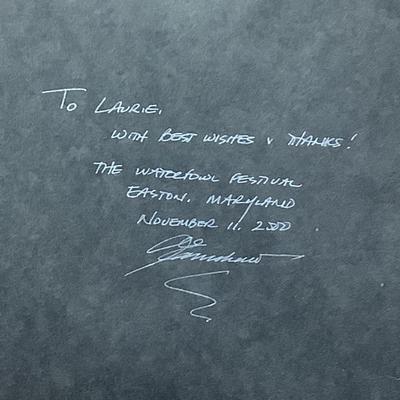 To LAURIE,
WITH BEST WISHES & THANKS!
THE WATERFOWL FESTIVAL
EASTON, MARYLAND
NOVEMBER 11, 2000